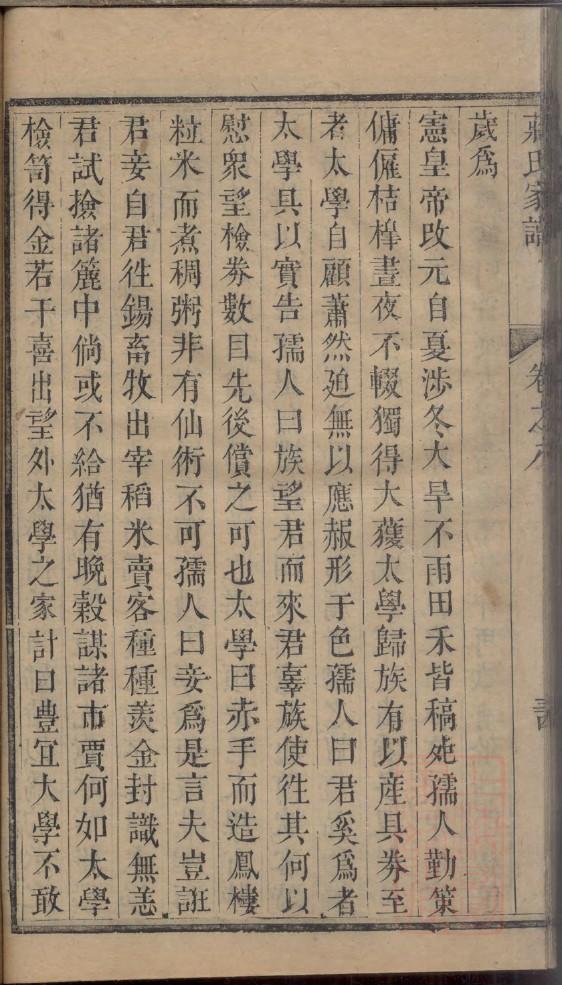 氏家譜
卷之八
歲爲
憲皇帝改元自夏涉冬大旱不雨田禾皆稿死孺人勤策
傭僱桔槔晝夜不輟獨得大穫太學歸族有以産具券至
者太學自顧蕭然廹無以應赧形于色孺人曰君奚爲者
太學具以實告孺人曰族望君而來君辜族使徃其何以
慰衆望檢券數目先後償之可也太學曰赤手而造鳳樓
粒米而煮稠粥非有仙術不可孺人曰妾爲是言夫豈誑
君妾自君徃鍚畜牧出宰稻米賣客種種羨金封識無恙
君試撿諸簏中倘或不給猶有晚穀謀諸市賈何如太學
檢笥得金若干喜出望外太學之家計曰豊宜大學不敢